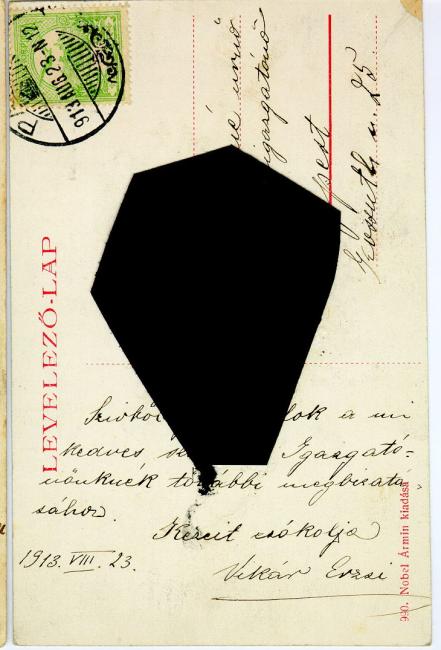 LEVELEZŐ-LAP
913 AUG 23
pest
Kossuth u. 25
Szivből
lok a mi
kedves
Igazgató-
nőnknek további megbizatá-
sához.
Kezeit csókolja
1913. VIII. 23.
Vikár Erzsi
990. Nobel Ármin kiadása